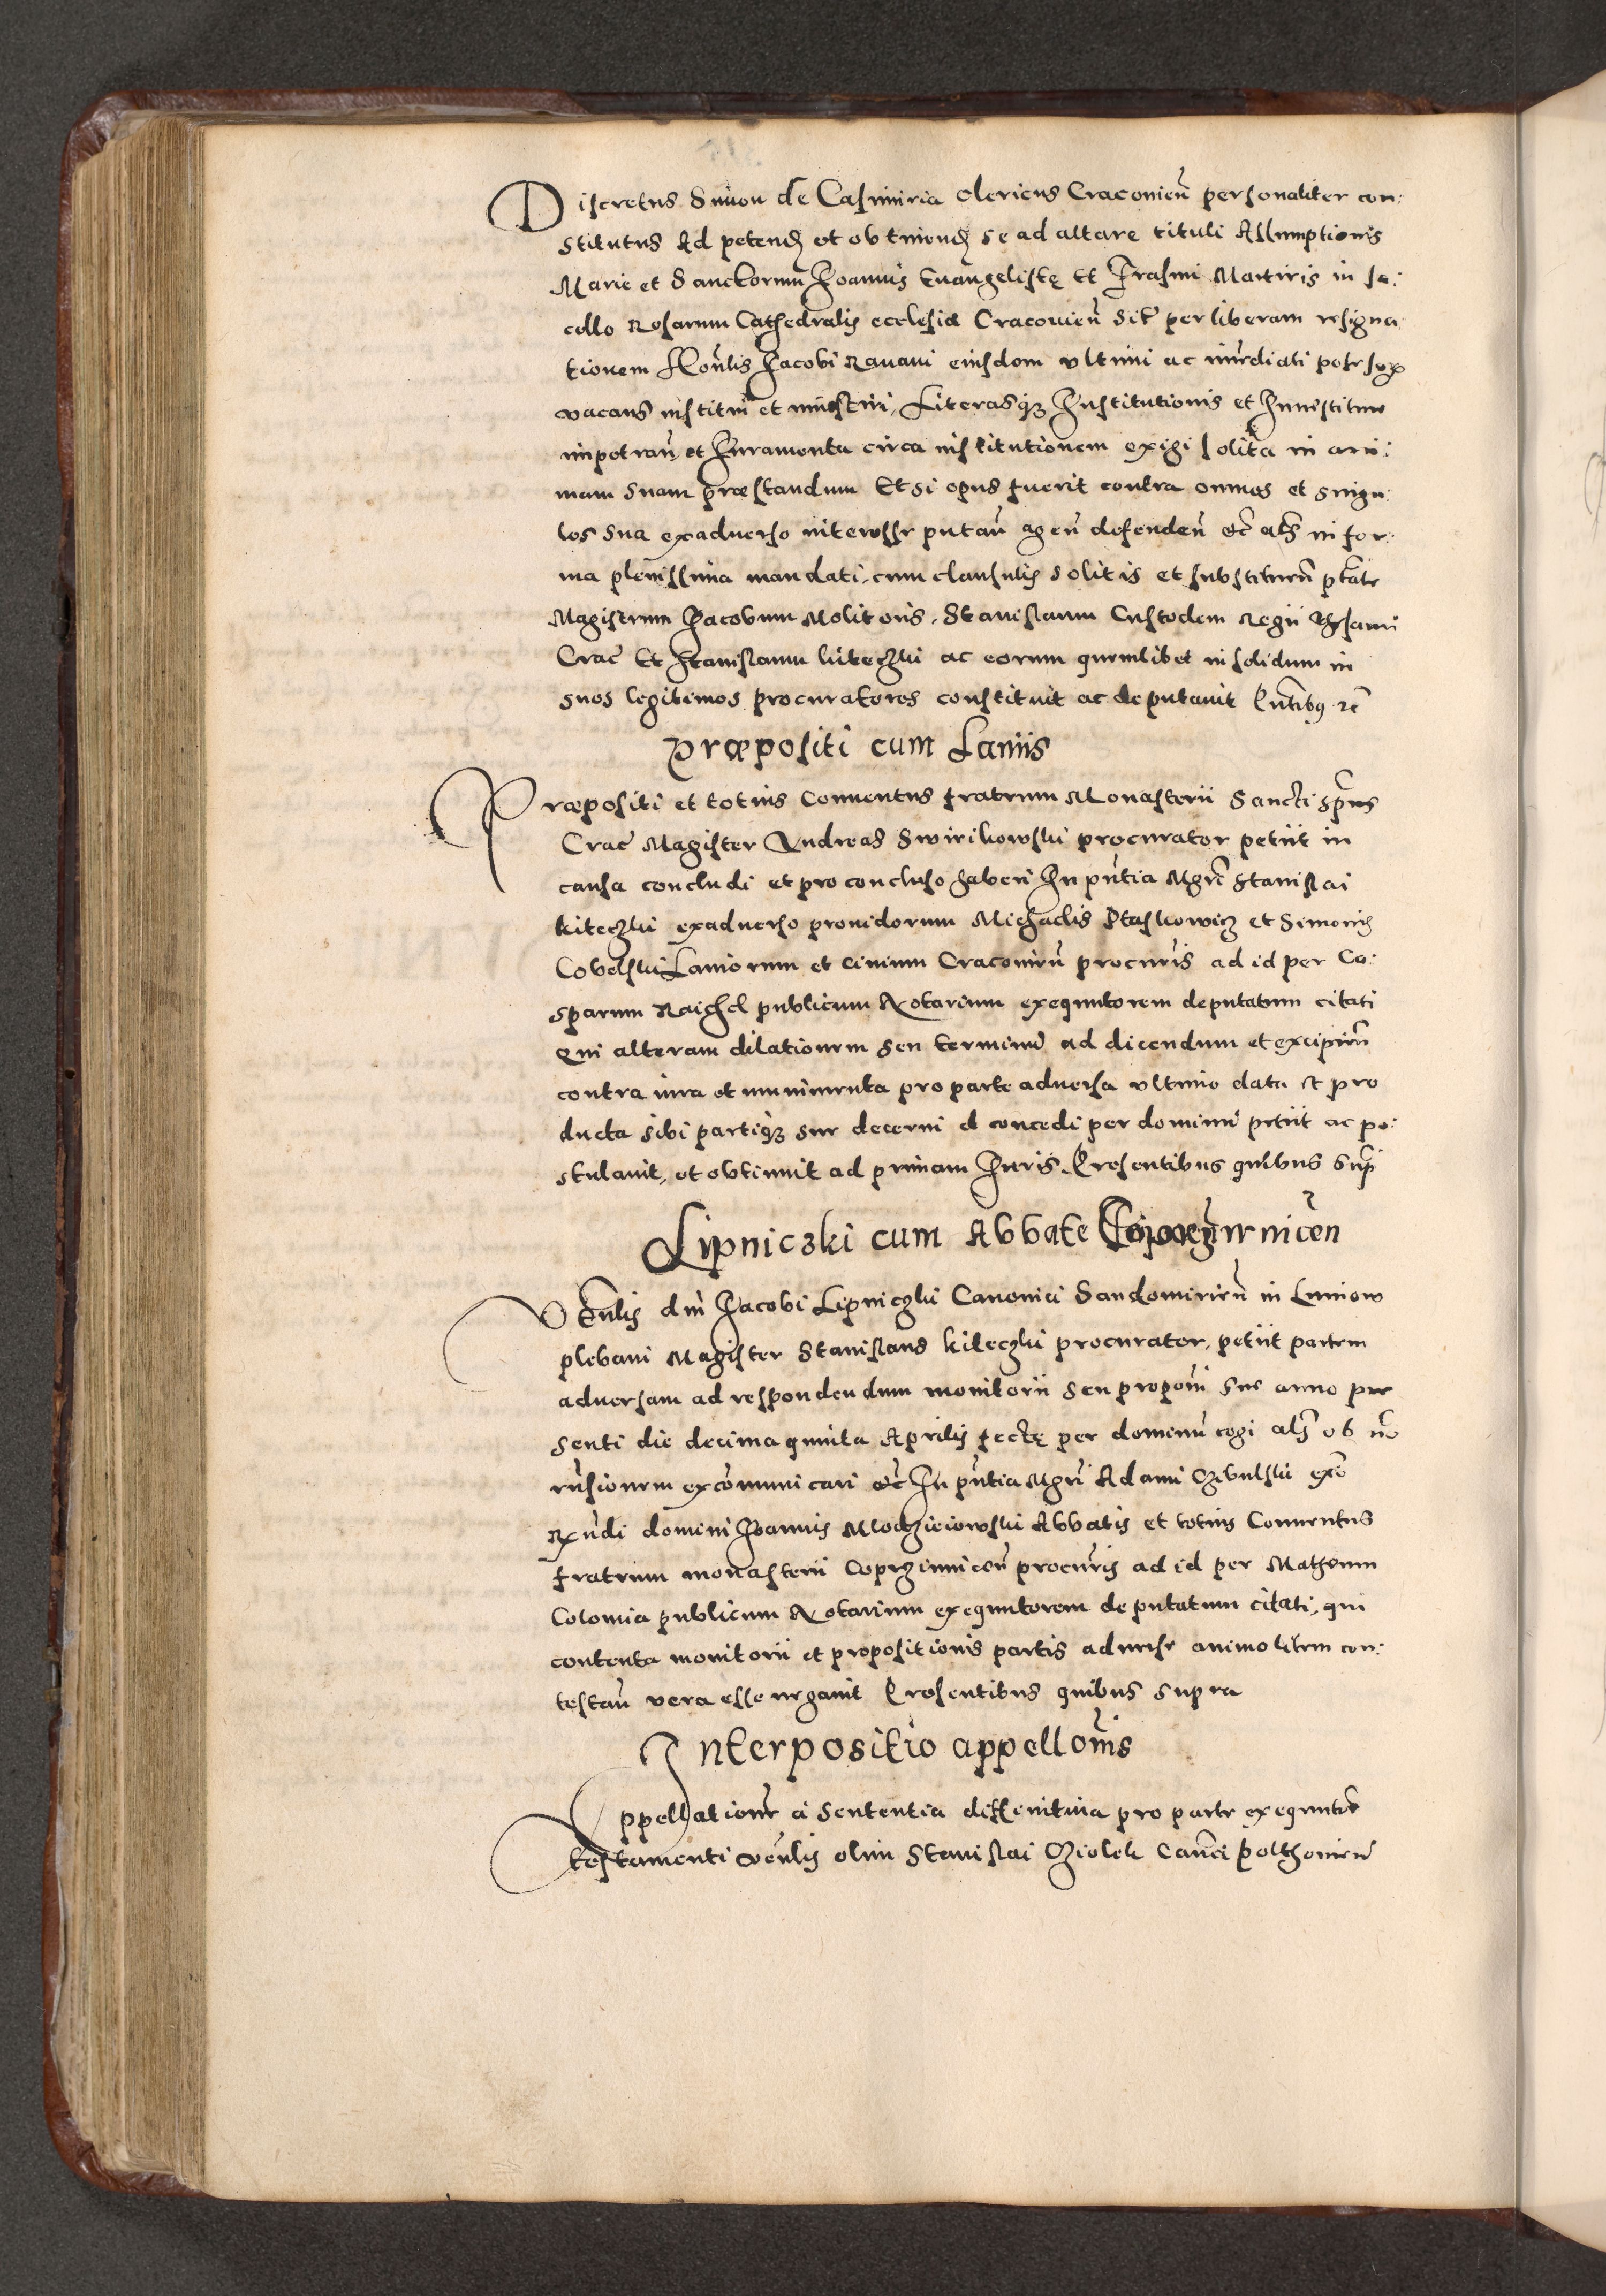 Discretus Simon de Casimiria Clericus Cracovień personaliter con:
stitutus Ad petend et obtinend se ad altare tituli Assumptionis
Marie et Sanctorum Joannis Evangelistę et Erasmi Martiris in sa:
cello Rosarum Cathedralis ecclesia Cracovień sit per liberam resigna
tionem Jacobi Ravani eiusdem ultimi ac immediati
vacans institui et investiri, Literasque Institutionis et Investiture
impetrań et Juramenta circa institutionem exigi solita in ani:
mam suam præstandum Et si opus fuerit contra omnes et singu:
los sua exadverso interesse putań ageń defendeń etc als in for:
ma plenissima mandati, cum clausulis solitis et substitueń
Magistrum Jacobum Molitoris, Stanislaum Custodem Regii Thesauri
Crac Et Stanislaum kiteczki ac eorum quemlibet in solidum in
suos legitimos procuratores constituit ac deputavit etc
Præpositi cum Laniis
Præpositi et totius Conventus fratrum Monasterii Sancti Spus
Crac Magister Andreas Swirikowski procurator petiit in
causa concludi et pro concluso haberi In pñtia Mgri Stanislai
kiteczki exadverso providorum Michaelis Ptaskowicz et Simonis
Cobelski Laniorum et Civium Cracovień procuris ad id per Ca:
sparum Raichel publicum Notarium exequutorem deputatum citati
Qui alteram dilationem seu terminum ad dicendum et excipień
contra iura et munimenta pro parte adversa ultimo data et pro
ducta sibi partique sue decerni et concedi per dominum petiit ac po:
stulavit, et obtinuit ad primam Juris. Presentibus quibus sup
Lipniczki cum Abbate
Veñlis dñi Jacobi Lipniczki Canonici Sandomirień in
plebani Magister Stanislaus kiteczki procurator, petiit partem
adversam ad respondendum monitorii seu proponi sue anno pre
senti die decima quinta Aprilis fectę per dominum cogi als ob
excomunicari etc In pñtia Mgri Adami exo
domini Joannis Mlodzieiowski Abbatis et totius Conventus
fratrum monasterii Coprziwniceń procuris ad id per Matheum
Colomia publicum Notarium exequutorem deputatum citati, qui
contenta monitorii et propositionis partis adverse animo litem con:
testań vera esse negavit Presentibus quibus supra
Interpositio appellonis
Appellatione a sententia diffinitiva pro parte
testamenti veñlis olim Stanislai Cziolek